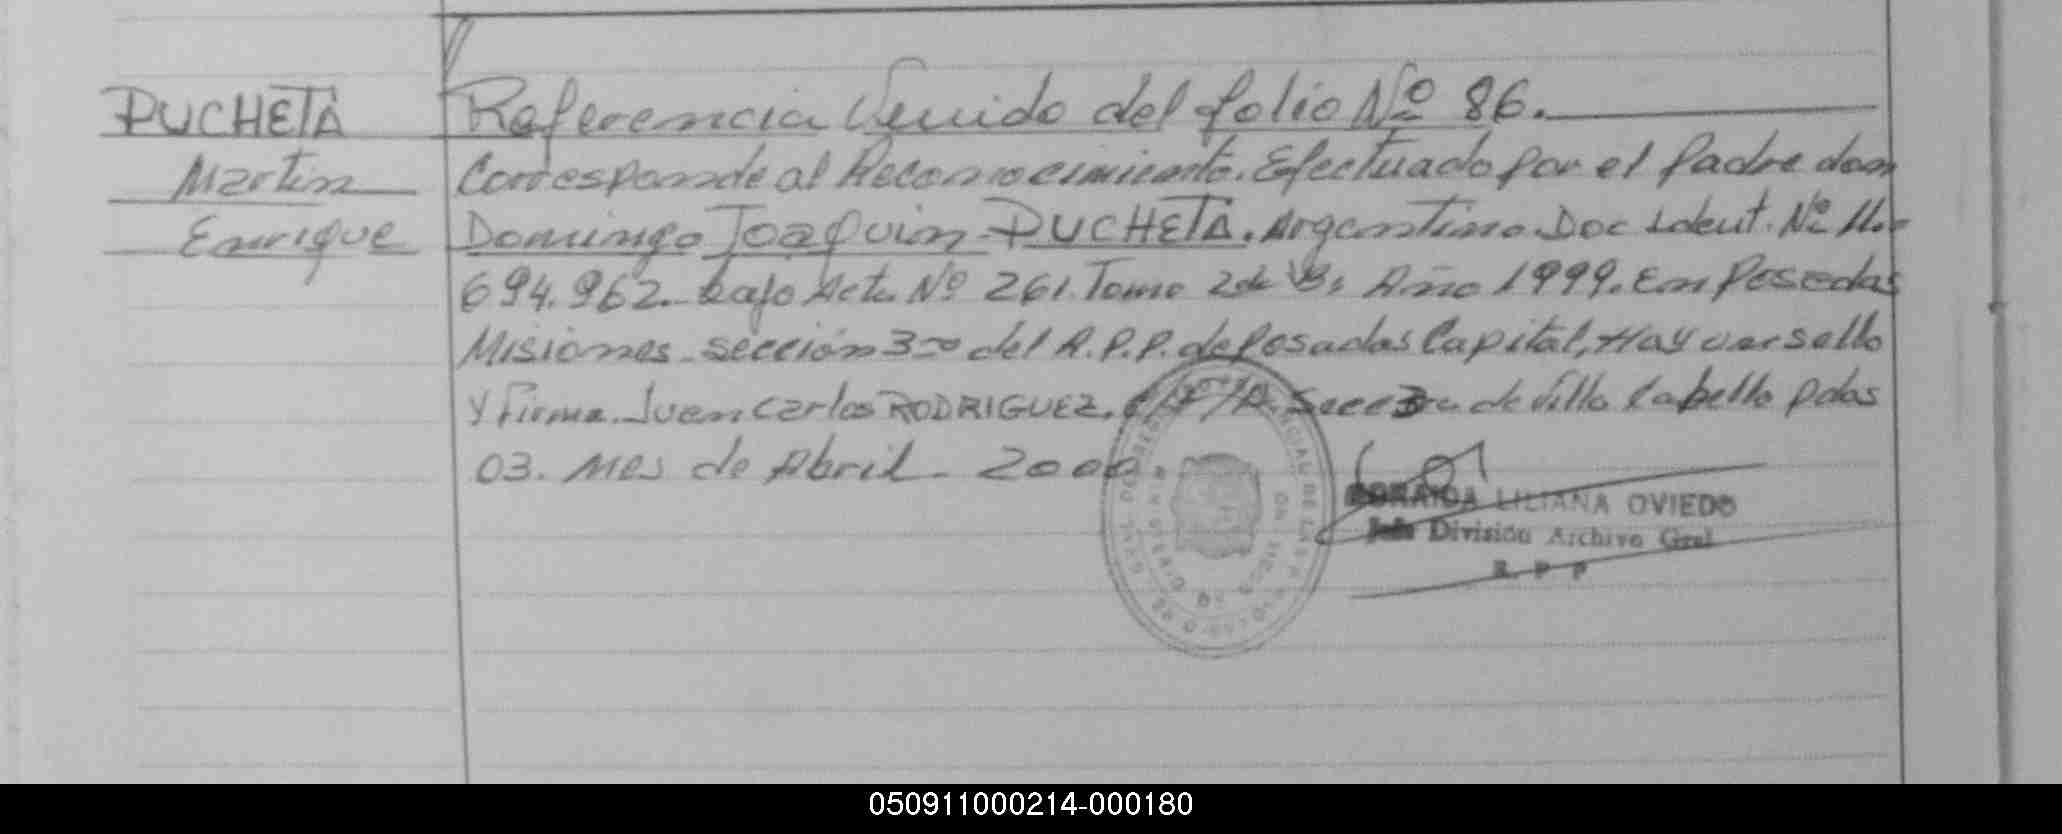 PUCHETA
Martin
Enrique
Referencia Venido del folio Nº 86.
Corresponde al Reconocimiento. Efectuado por el padre don
Domingo Joaquin PUCHETA. Argentino. Doc Ident. Nº 11.-
694.962. bajo Acta Nº 261. Tomo 2do Año 1999. en Posadas
Misiones. sección 3ra del R.P.P. de Posadas Capital, Hay un sello
y firma. Juan Carlos RODRIGUEZ. Secc 3ra de Villa Cabello Pdas
03. Mes de Abril - 2000
LILIANA OVIEDO
Jefe División Archivo Gral
R. P. P
050911000214-000180